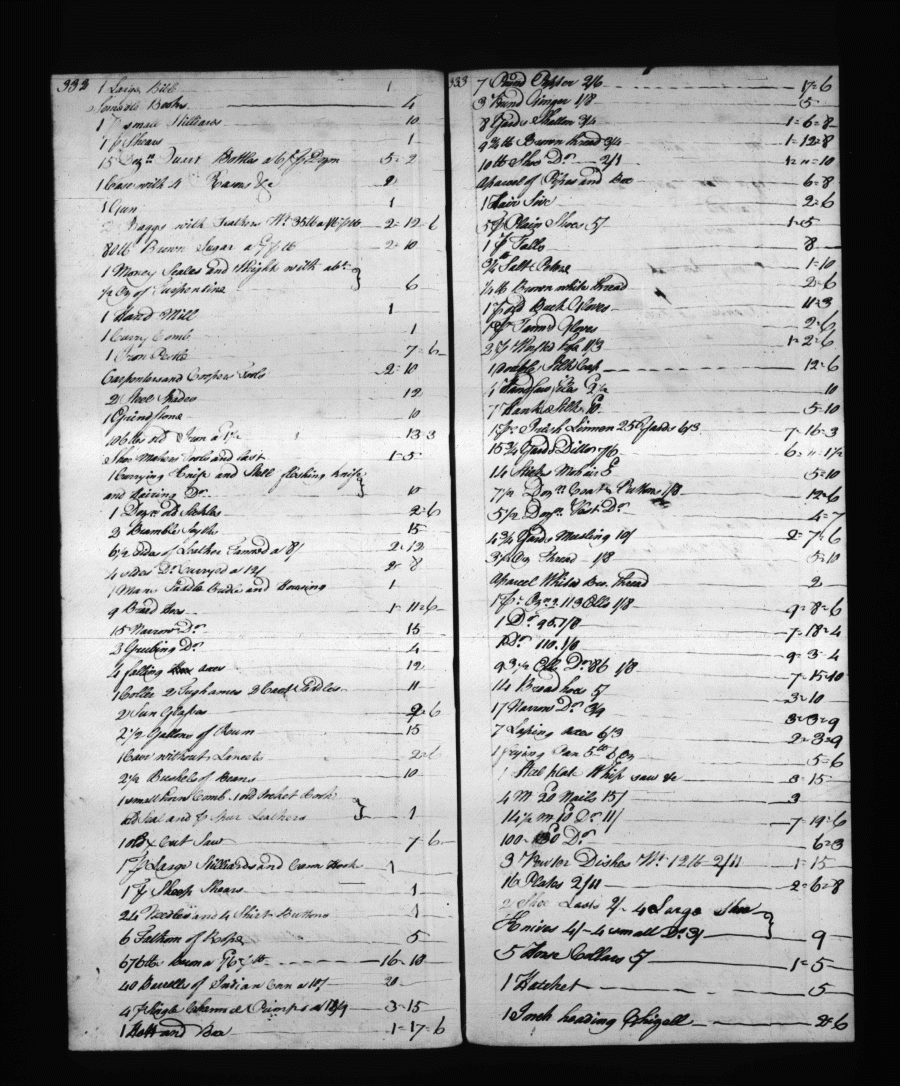 333
1 Large Bible 1
Books 4
1 pr small Stilliards 10
1 pr Shears 1
15 Dozn Quart Bottles a 6/ p Dozn 5=2
1 Case with 4 &c 2
1 Gun 1
Baggs with Feathers Wt 35lb a 1/6 p lb 2=12=6
80 lb Brown Sugar a p lb 2=10
1 Money Scales and Weights with abt
1/2 Oz of Turpentine 6
1 Hand Mill 1
1 Curry Comb 1
1 Iron Pestle 7=6
Carpenters and Coopers Tools 2=10
2 Steel Spades 12
1 Grindstone 10
106 lbs old Iron a 1 1/2 13=3
Shoe Makers Tools and last 1=5
1 Currying Knife and Steel fleshing knife
and Hairing Do 10
1 Dozn old Sickles 2=6
2 Bramble Scythes 15
6 1/2 sides of Leather Tanned a 8/ 2=12
4 sides Do Curryed a 12/ 2=8
1 Mans Saddle Bridle and Housing 1
9 Broad Hoes 1=11=6
15 Narrow Do 15
3 Grubing Do 4
4 falling axes 12
1 Coller 2 Cart Saddles 11
2 Sun Glasses 2=6
2 1/2 Gallons of Rum 15
1 Case without Lancets 2=6
2 1/2 Bushels of Beans 10
1 small Horn Comb 1 old Socket
old Seal and pr Spur Leathers 1
1 old X Cut Saw 7=6
1 pr Large Stilliards and Hook 1
1 pr Sheep Shears 1
24 Needles and 4 Shirt Buttons 1
6 Fathom of Rope 5
676 lbs Bacon a /6 p lb 16=18
40 Barrells of Indian Corn a 10/ 20
4 pr Single Channel Pumps a 18/9 3=15
1 Hatt and Box 1=17=6
333
7 Pound Pepper 2/6 17=6
3 Pound Ginger 1/8 5
8 Yards Shalloon 3/4 1=6=8
9 3/4 lb Brown thread 3/4 1=12=8
10 lb Shoe Do 2/1 1=0=10
A parcel of Pipes and Box 6=8
1 Hair Sive 2=6
5 pr Plain Shoes 5/ 1=5
1 pr Falls 8
3/4 Salt Petre 1=10
1/4 lb Brown white thread 2=6
1 pr old Buck Gloves 11=3
1 pr Tannd Gloves 2=6
2 pr Worsted hose 11/3 1=2=6
1 double Silk Cap 12=6
4 Handsaw files 2 1/2 10
7 Hanks Silk 10 5=10
1 ps Irish Linnen 25 Yards 6/3 7=16=3
15 3/4 Yards Ditto 7/6
14 Sticks Mohair 5 5=10
7 1/2 Dozn Coat Buttons 1/8 12=6
5 1/2 Dozn Vest Do 4=7
4 3/4 Yards Musling 10/ 2=7=6
3 1/2 Oz Thread 1/8 5=10
A parcel Whited Bro. Thread 2
1 ps Oznas 113 Ells 1/8 9=8=6
1 Do 95. 1/8 7=18=4
1 Do 110. 1/8 9=3=4
93 3/4 Ells Do 86 1/8 7=15=10
14 Broad hoes 5/ 3=10
17 Narrow Do 3/9 3=3=9
7 axes 6/3 2=3=9
1 Frying Pan 5=6
1 Steel plate Whip saw &c 3=15
4 M 20 Nails 15/ 3
14 1/2 M 10 Do 11/ 7=19=6
100 30 Do 6=3
3 Pewter Dishes Wt 12 lb 2/11 1=15
16 Plates 2/11 2=6=8
2 Shoe Lasts 2/ - 4 Large Shoe
Knives 4/ - 4 small Do 3/ 9
5 Horse Collars 5/ 1=5
1 Hatchet 5
1 Inch heading Chizell 2=6